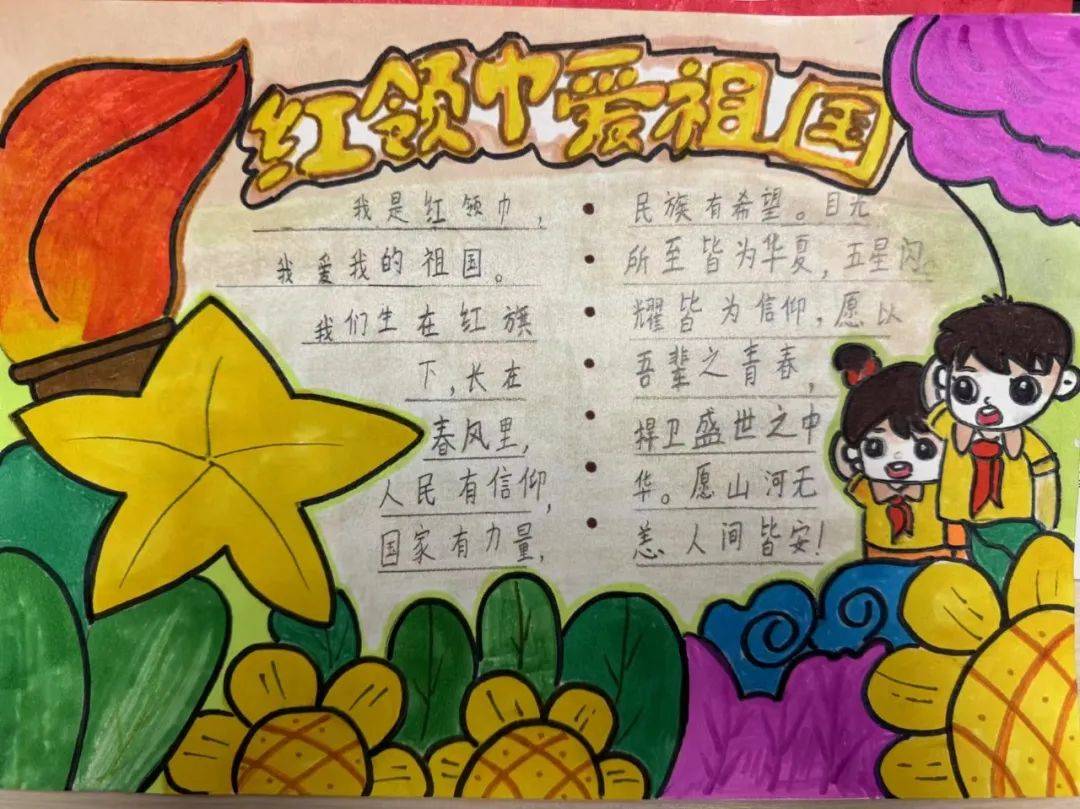 红领巾爱祖国
我是红领巾，
我爱我的祖国。
我们生在红旗
下，长在
春风里，
人民有信仰，
国家有力量，
民族有希望。目光
所至皆为华夏，五星闪
耀皆为信仰，愿以
吾辈之青春，
捍卫盛世之中
华。愿山河无
恙人间皆安！